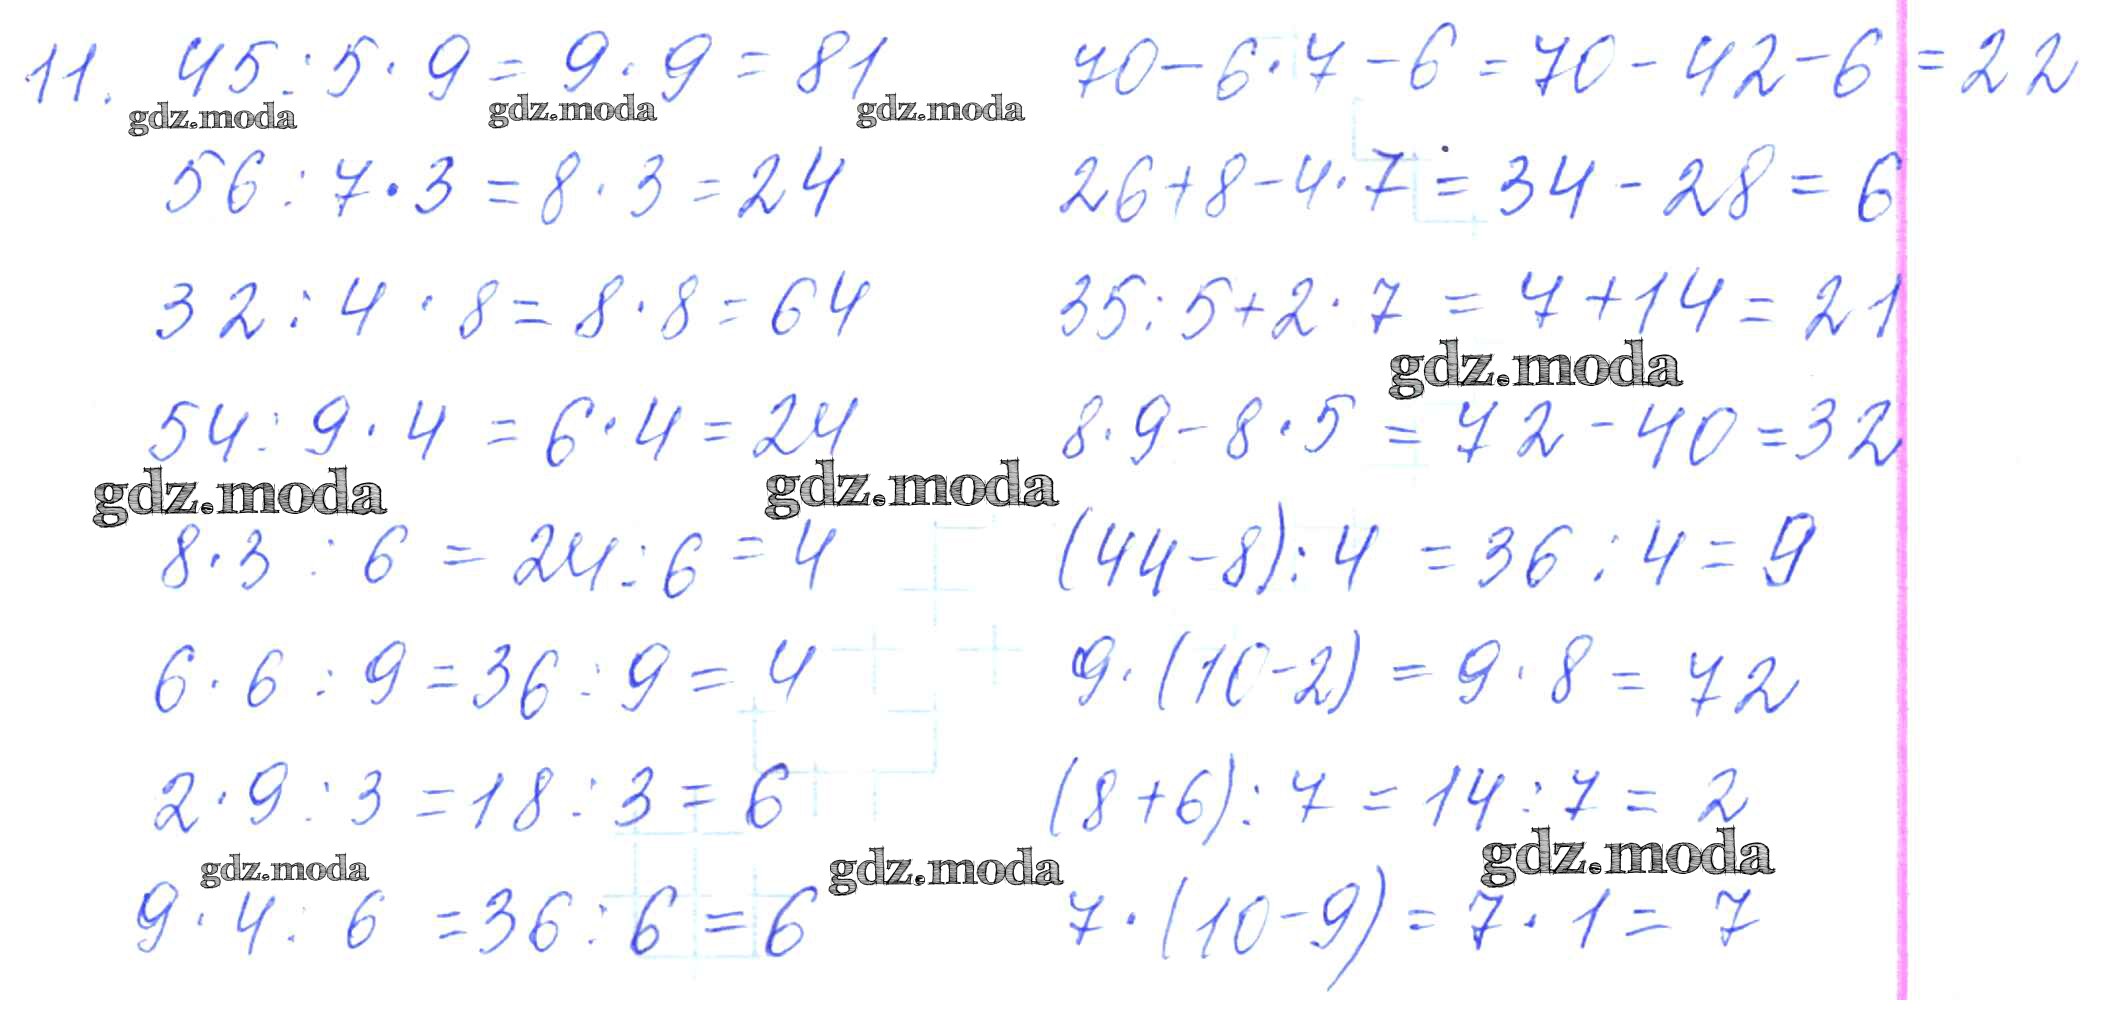 11. 45 : 5 · 9 = 9 · 9 = 81
gdz.moda gdz.moda gdz.moda
56 : 7 · 3 = 8 · 3 = 24
32 : 4 · 8 = 8 · 8 = 64
54 : 9 · 4 = 6 · 4 = 24
gdz.moda gdz.moda
8 · 3 : 6 = 24 : 6 = 4
6 · 6 : 9 = 36 : 9 = 4
2 · 9 : 3 = 18 : 3 = 6
gdz.moda gdz.moda
9 · 4 : 6 = 36 : 6 = 6
70 - 6 · 7 - 6 = 70 - 42 - 6 = 22
26 + 8 - 4 · 7 = 34 - 28 = 6
35 : 5 + 2 · 7 = 7 + 14 = 21
gdz.moda
8 · 9 - 8 · 5 = 72 - 40 = 32
(44 - 8) : 4 = 36 : 4 = 9
9 · (10 - 2) = 9 · 8 = 72
(8 + 6) : 7 = 14 : 7 = 2
gdz.moda
7 · (10 - 9) = 7 · 1 = 7